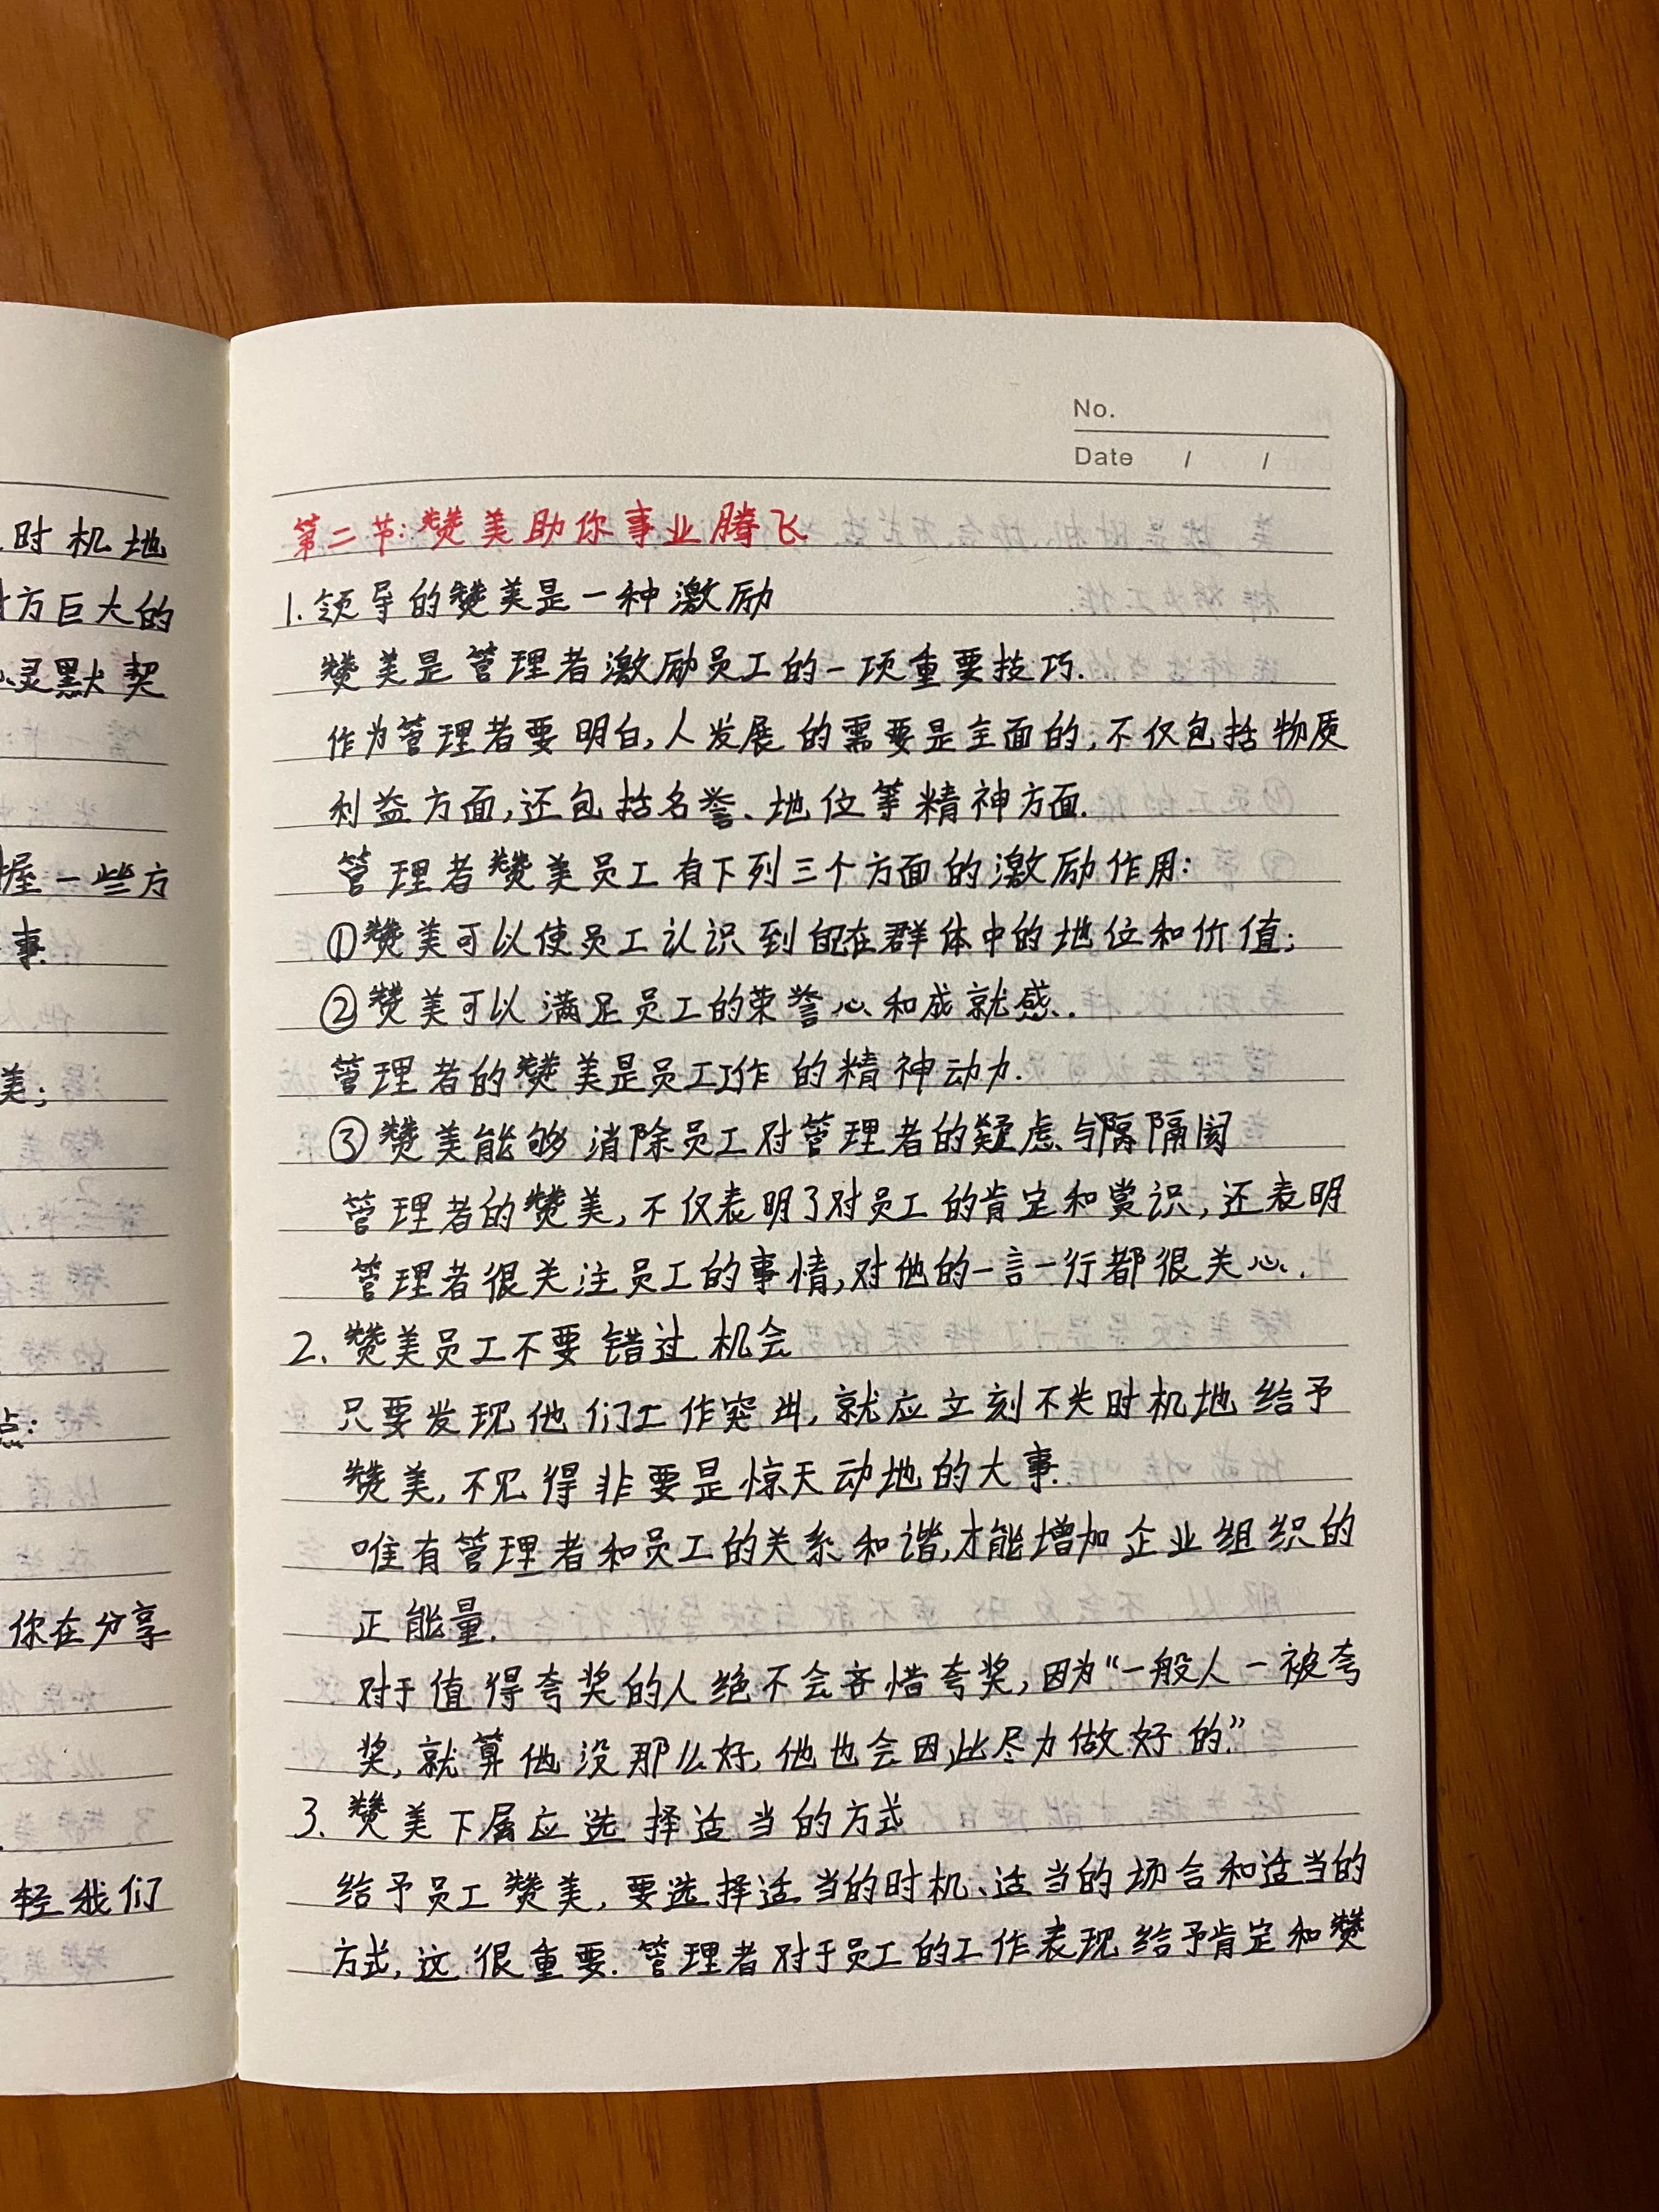 时机地
方巨大的
灵默契
握一些方
事.
美;
点:
你在分享
轻我们
No.
Date / /
第二节:赞美助你事业腾飞
1.领导的赞美是一种激励
赞美是管理者激励员工的一项重要技巧.
作为管理者要明白,人发展的需要是全面的,不仅包括物质
利益方面,还包括名誉、地位等精神方面.
管理者赞美员工有下列三个方面的激励作用:
①赞美可以使员工认识到自己在群体中的地位和价值;
②赞美可以满足员工的荣誉心和成就感.
管理者的赞美是员工工作的精神动力.
③赞美能够消除员工对管理者的疑虑与隔隔阂
管理者的赞美,不仅表明了对员工的肯定和赏识,还表明
管理者很关注员工的事情,对他的一言一行都很关心.
2.赞美员工不要错过机会
只要发现他们工作突出,就应立刻不失时机地给予
赞美,不见得非要是惊天动地的大事.
唯有管理者和员工的关系和谐,才能增加企业组织的
正能量.
对于值得夸奖的人绝不会吝惜夸奖,因为“一般人一被夸
奖,就算他没那么好,他也会因此尽力做好的.”
3.赞美下属应选择适当的方式
给予员工赞美,要选择适当的时机、适当的场合和适当的
方式,这很重要.管理者对于员工的工作表现给予肯定和赞